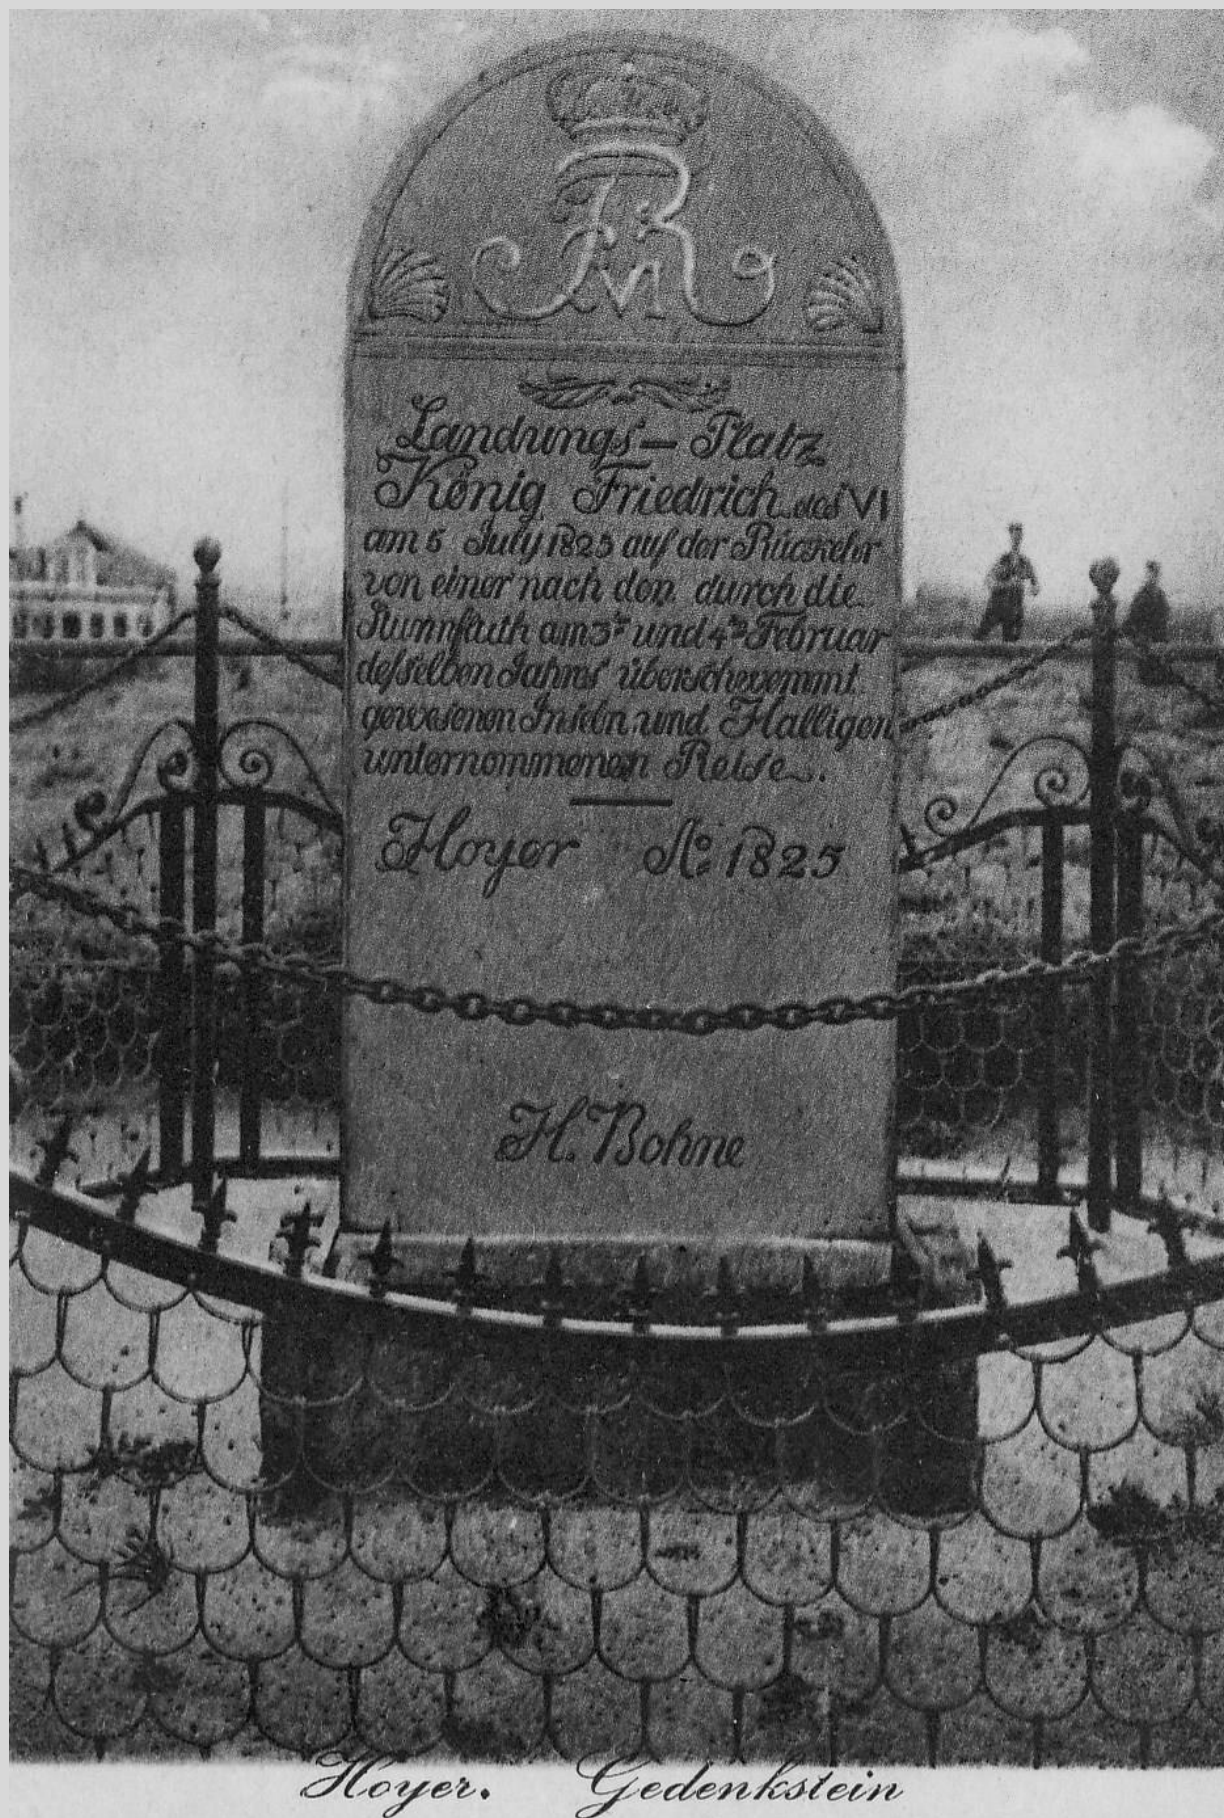 FR VI
Landungs- Platz
König Friedrich des VI
am 5 July 1825 auf der Rückkehr
von einer nach den durch die
Sturmfluth am 3ᵗᵉ und 4ᵗᵉ Februar
desselben Jahres überschwemmt
gewesenen Inseln und Halligen
unternommenen Reise.
Hoyer Aº: 1825
H. Bohne
Hoyer. Gedenkstein